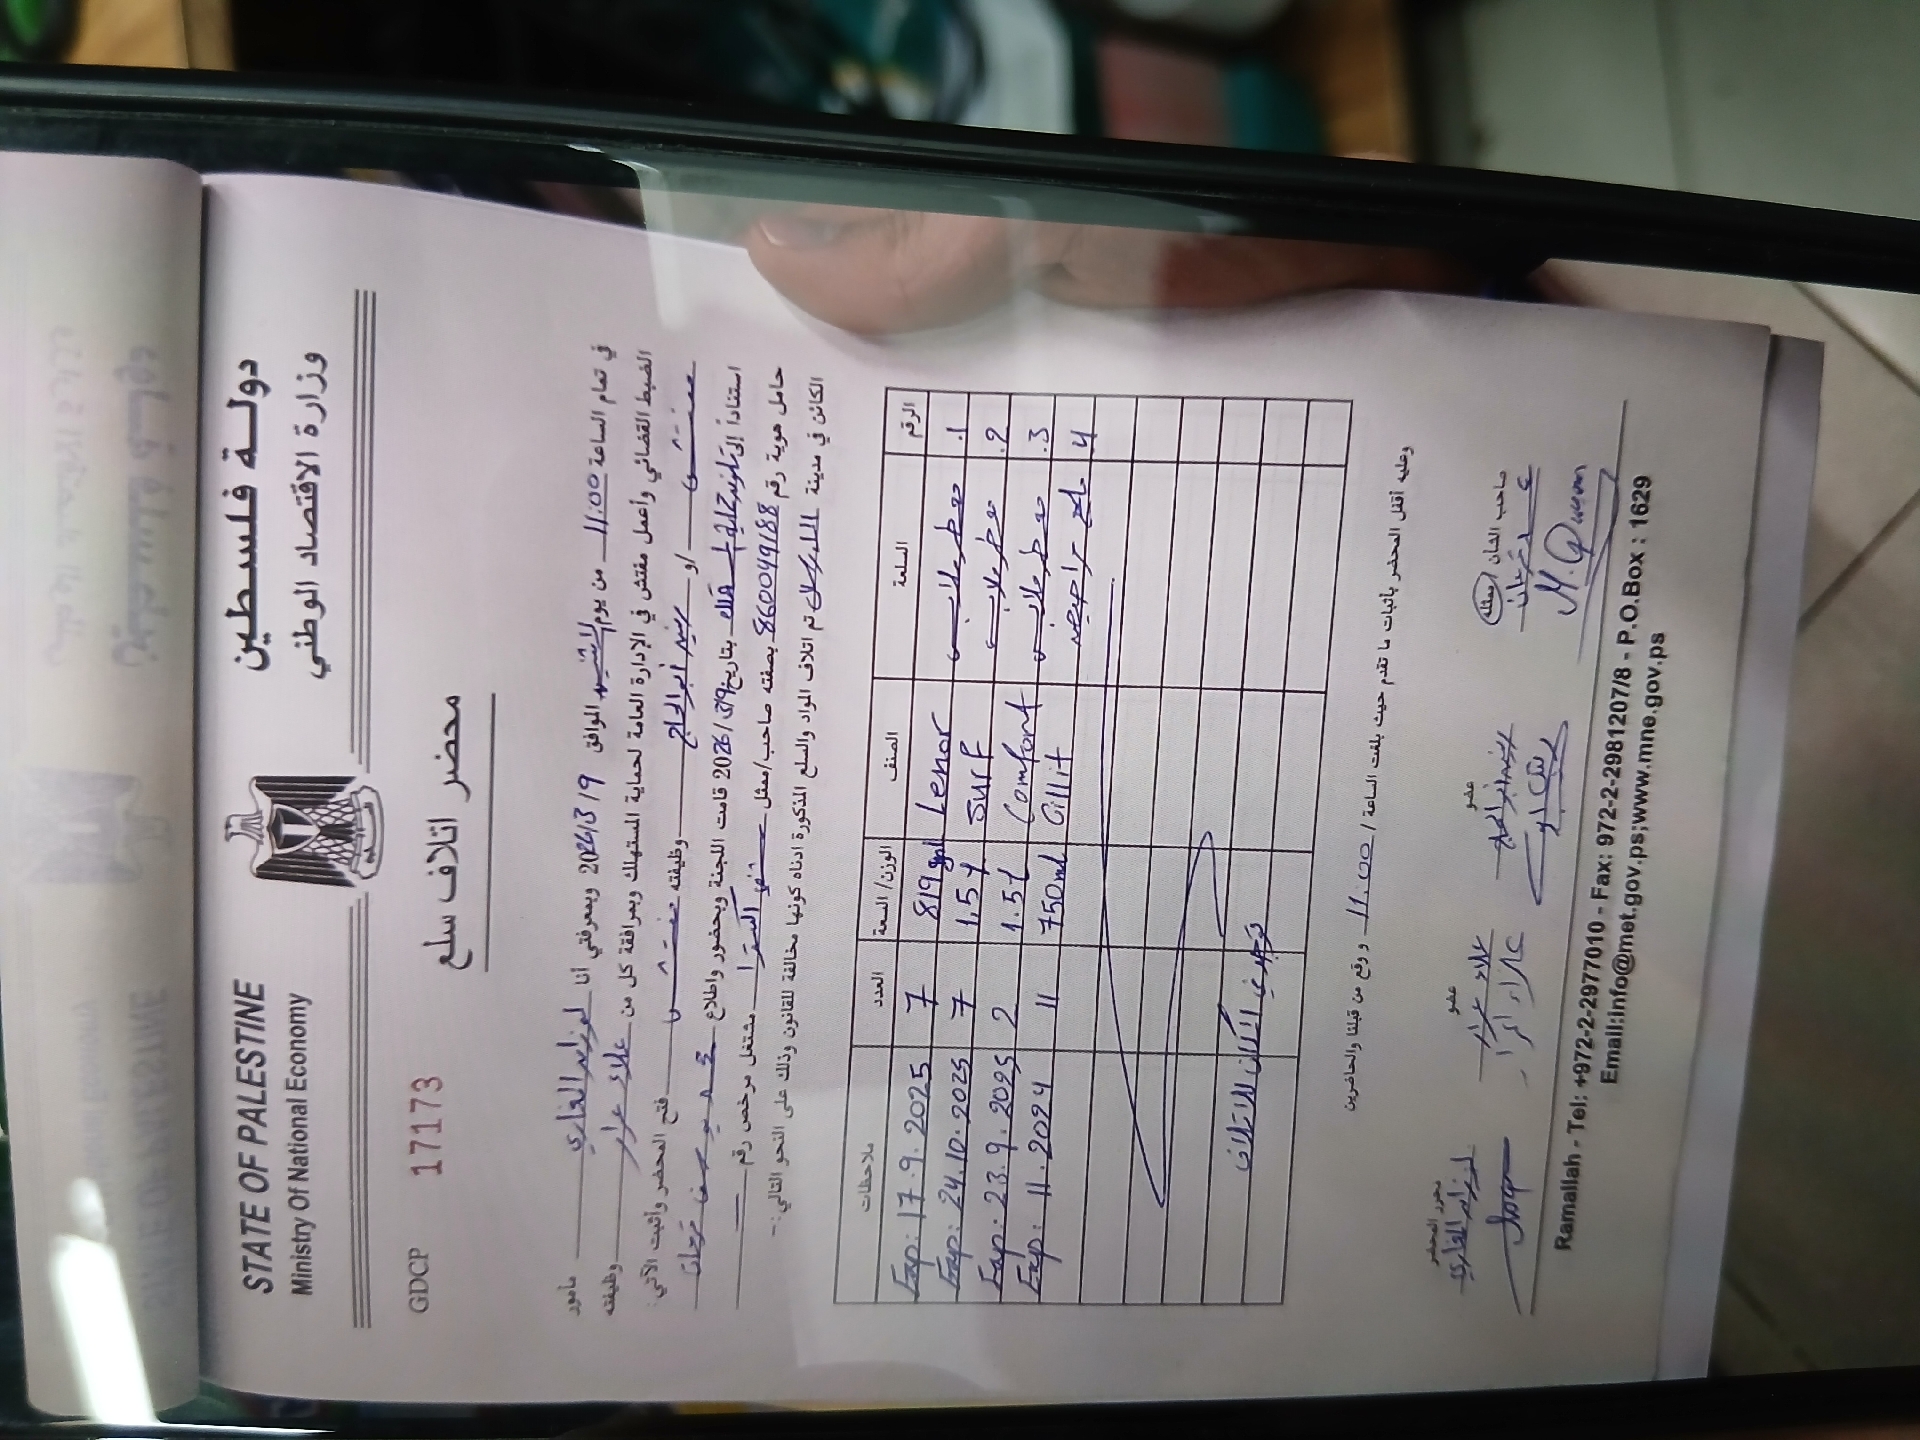 STATE OF PALESTINE
Ministry Of National Economy
دولـة فلـسطين
وزارة الاقتصاد الوطني
GDCP 17173
محضر اتلاف سلع
في تمام الساعة 11:00 من يوم الموافق 2026/3/9 وبمعرفتي أنا مأمور
الضبط القضائي وأعمل مفتش في الإدارة العامة لحماية المستهلك وبمرافقة كل من علاء عرار وظيفته
مفتش و/او رشيد أبو الحاج وظيفته مفتش فتح المحضر وأثبت الآتي:
استناداً إلى بتاريخ 2026/3/9 قامت اللجنة وبحضور واطلاع
حامل هوية رقم 860049188 بصفته صاحب/ممثل مشتغل مرخص رقم
الكائن في مدينة تم اتلاف المواد والسلع المذكورة ادناه كونها مخالفة للقانون وذلك على النحو التالي:-
الرقم السلعة الصنف الوزن/السعة العدد ملاحظات
1. معطر ملابس Lenor 819 ml 7 Exp: 17.9.2025
2. معطر ملابس Surf 1.5 L 7 Exp: 24.10.2025
3. معطر ملابس Comfort 1.5 L 2 Exp: 23.9.2025
4. Cillit 750 ml 11 Exp: 11.2024
وعليه أقفل المحضر بأثبات ما تقدم حيث بلغت الساعة / 11:00 و وقع من قبلنا والحاضرين
صاحب الشأن / ممثله عضو عضو محرر المحضر
رشيد ابو الحاج علاء عرار
Ramallah - Tel: +972-2-2977010 - Fax: 972-2-2981207/8 - P.O.Box : 1629
Email:info@met.gov.ps;www.mne.gov.ps